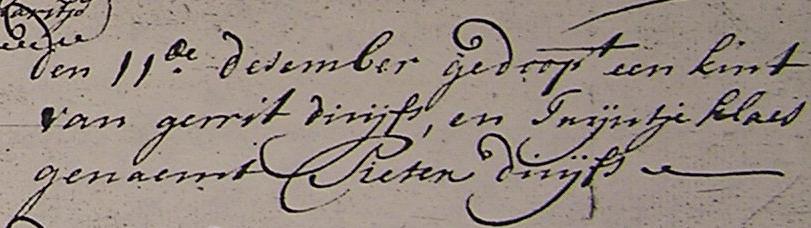 den 11de desember gedoopt een kint
van gerrit duijfs, en Trijntje klaes
genaemt Pieter duijfs